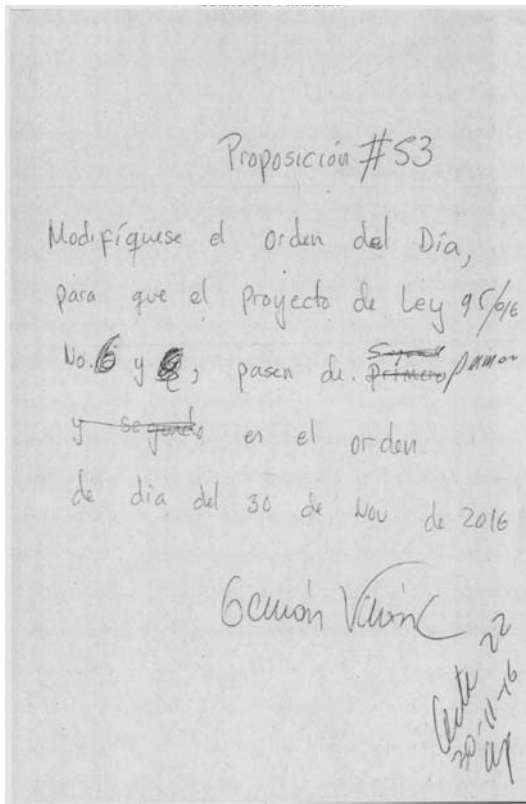 Proposición #53
Modifíquese el orden del Día,
para que el Proyecto de Ley 95/016
No. 6 y 8, pasen de. primero
y segundo en el orden
de dia del 30 de Nov de 2016
Germán Varón C
22
30-11-16